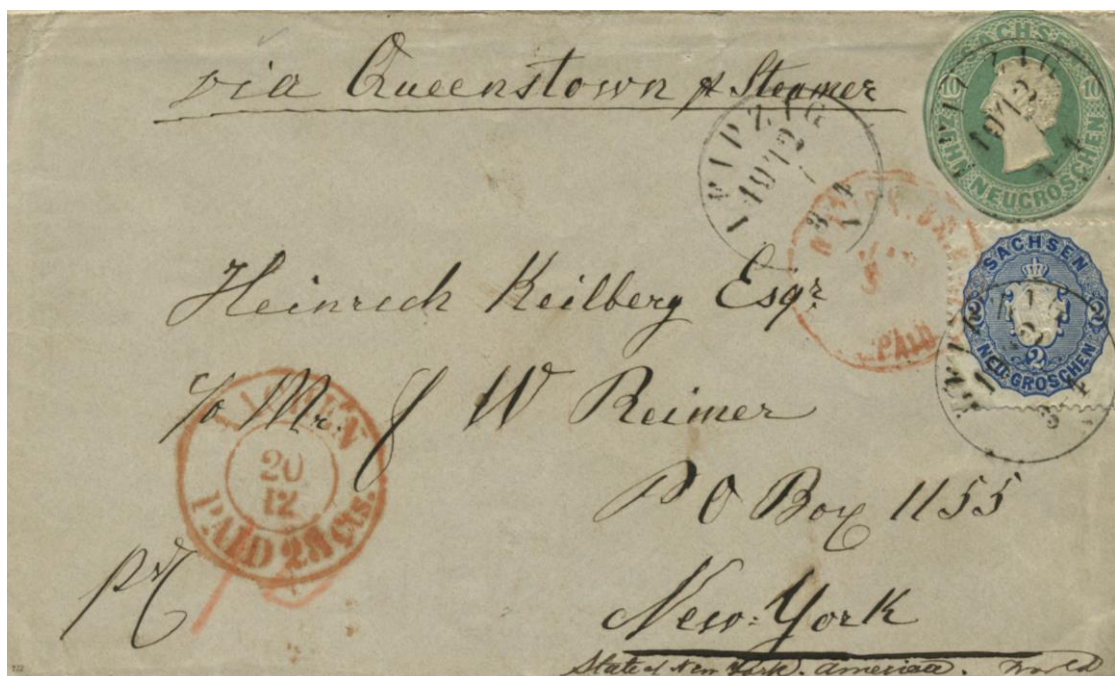 via Queenstown pr Steamer
SACHSEN
10 10
ZEHN NEUGROSCHEN
LEIPZIG
19 12
LEIPZIG
19 12
3-4
PAID
SACHSEN
2 2
2
NEU-GROSCHEN
Heinrich Keilberg Esqr.
c/o Mr. J W Reimer
PO Box 1155
New-York
State of New York. America. World
AACHEN
20
12
PAID 28 Cts.